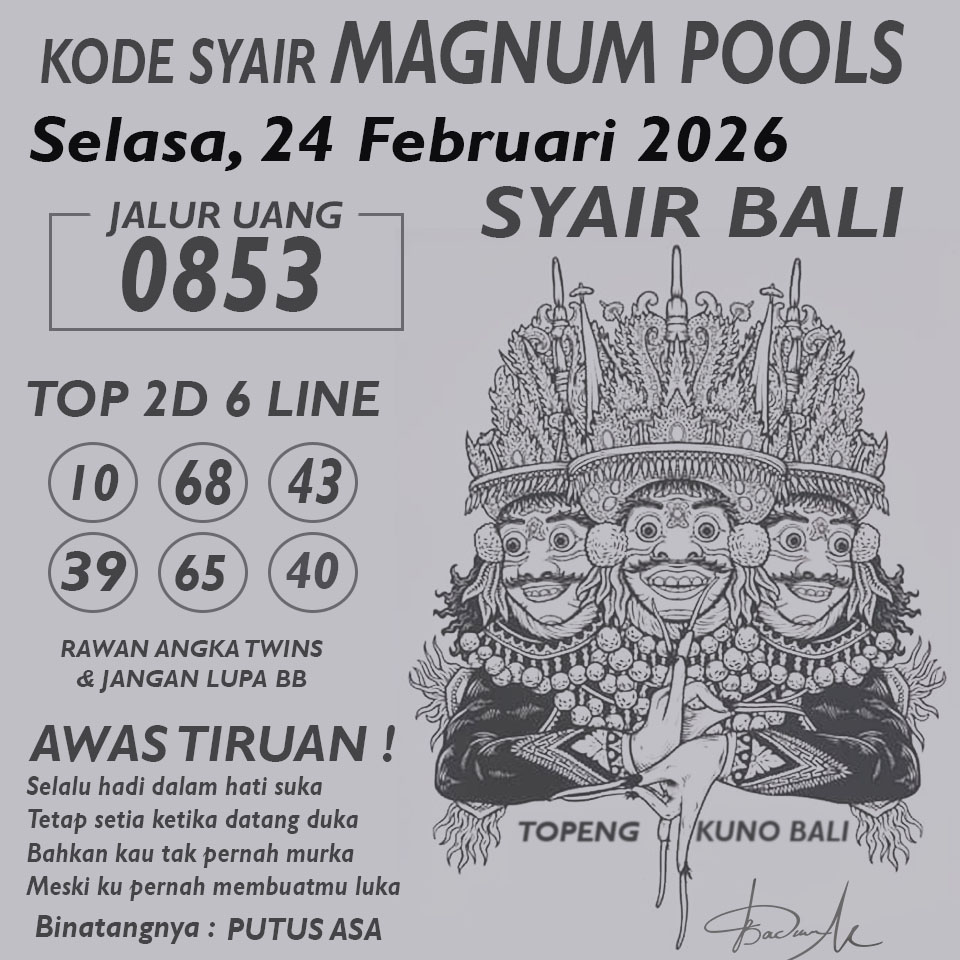 KODE SYAIR MAGNUM POOLS
Selasa, 24 Februari 2026
SYAIR BALI
JALUR UANG
0853
TOP 2D 6 LINE
10 68 43
39 65 40
RAWAN ANGKA TWINS
& JANGAN LUPA BB
AWAS TIRUAN !
Selalu hadi dalam hati suka
Tetap setia ketika datang duka
Bahkan kau tak pernah murka
Meski ku pernah membuatmu luka
Binatangnya : PUTUS ASA
TOPENG KUNO BALI